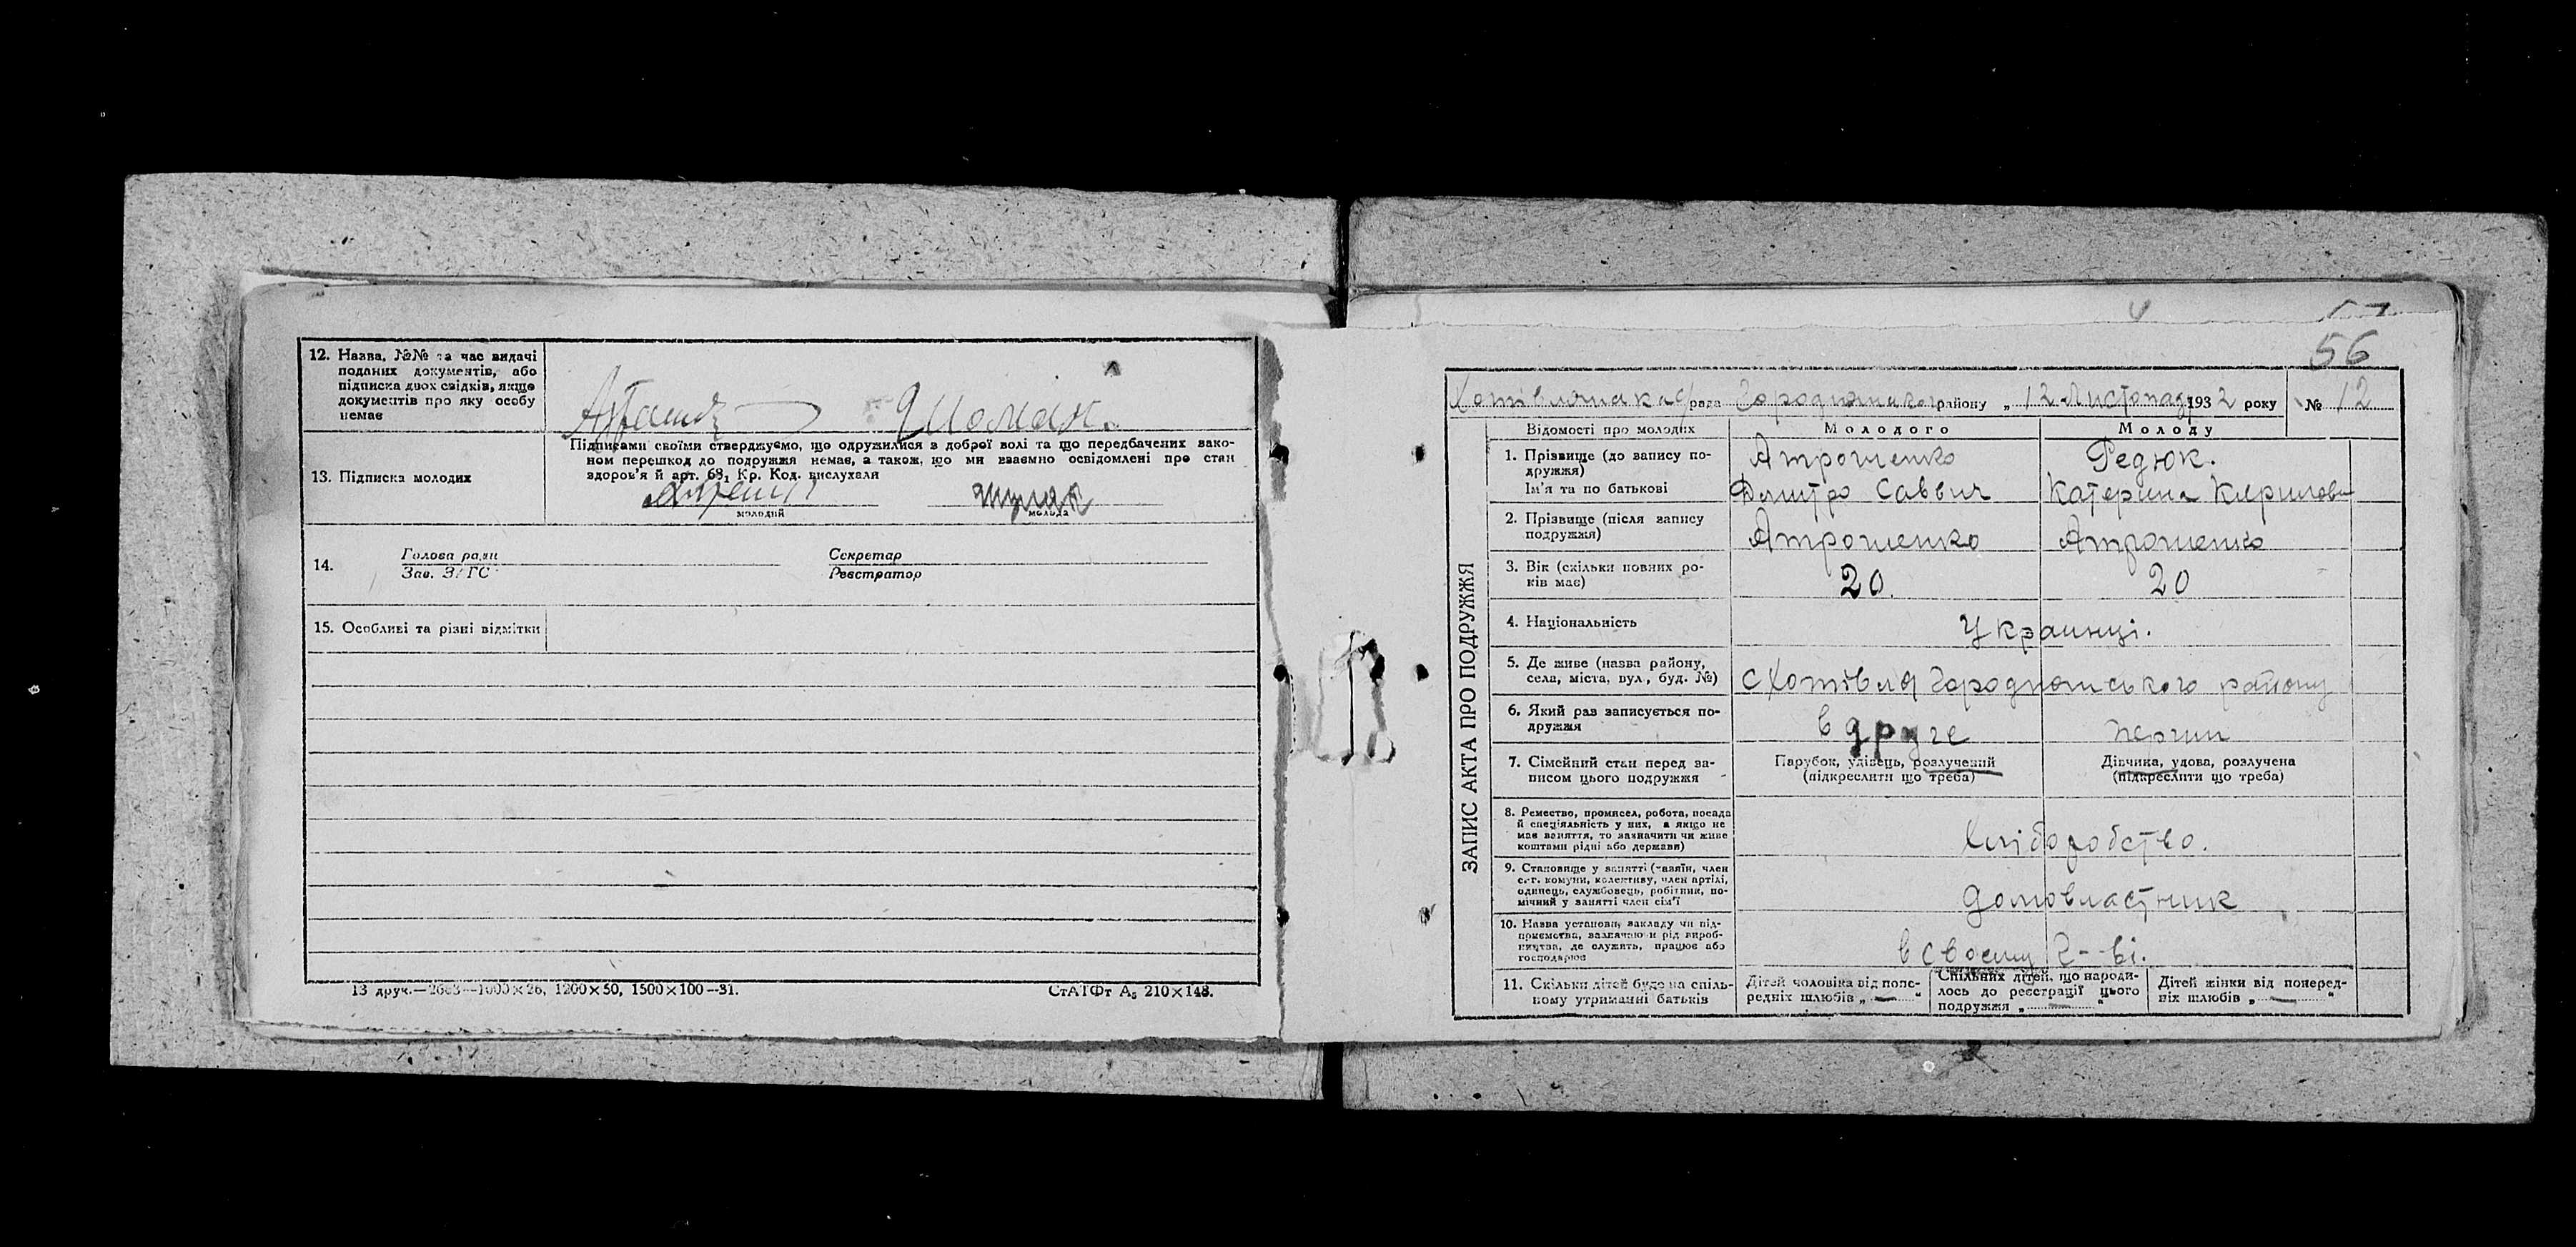 12. Назва, №№ та час видачі
поданих документів, або
підписка двох свідків, якщо
документів про яку особу
немає
Підписами своїми стверджуємо, що одружилися з доброї волі та що передбачених зако-
ном перешкод до подружжя немає, а також, що ми взаємно освідомлені про стан
здоров'я й арт. 68₁ Кр. Код. вислухали
13. Підписка молодих
молодий молода
14. Голова ради Секретар
Зав. ЗАГС Реєстратор
15. Особливі та різні відмітки
13 друк.—2663—1000×26, 1200×50, 1500×100—31. СтАТФт А₅ 210×148.
56
ЗАПИС АКТА ПРО ПОДРУЖЖЯ
рада району „12 Листопад 1932 року № 12
Відомості про молодих Молодого Молоду
1. Прізвище (до запису по-
дружжя) Атрошенко Редюк.
Ім'я та по батькові Дмитро Саввич Катерина Кирилови
2. Прізвище (після запису
подружжя) Атрошенко Атрошенко
3. Вік (скільки повних ро-
ків має) 20. 20
4. Національність Украинці.
5. Де живе (назва району,
села, міста, вул., буд. №) с Хотівля Городнянського району
6. Який раз записується по-
дружжя вдруге перший
7. Сімейний стан перед за-
писом цього подружжя
Парубок, удівець, розлучений
(підкреслити що треба)
Дівчина, удова, розлучена
(підкреслити що треба)
8. Ремество, промисел, робота, посада
й спеціяльність у них, а якщо не
має заняття, то зазначити чи живе
коштами рідні або держави) Хліборобство.
9. Становище у занятті (хазяїн, член
с.-г. комуни, колективу, член артілі,
одинець, службовець, робітник, по-
мічний у занятті член сім'ї домовластник
10. Назва установи, закладу чи під-
приємства, зазначаючи рід вироб-
ництва, де служить, працює або
господарює в своєму г--ві.
11. Скільки дітей буде на спіль-
ному утриманні батьків
Дітей чоловіка від попе-
редніх шлюбів „ — “
Спільних дітей, що народи-
лось до реєстрації цього
подружжя „ — “
Дітей жінки від поперед-
ніх шлюбів „ — “